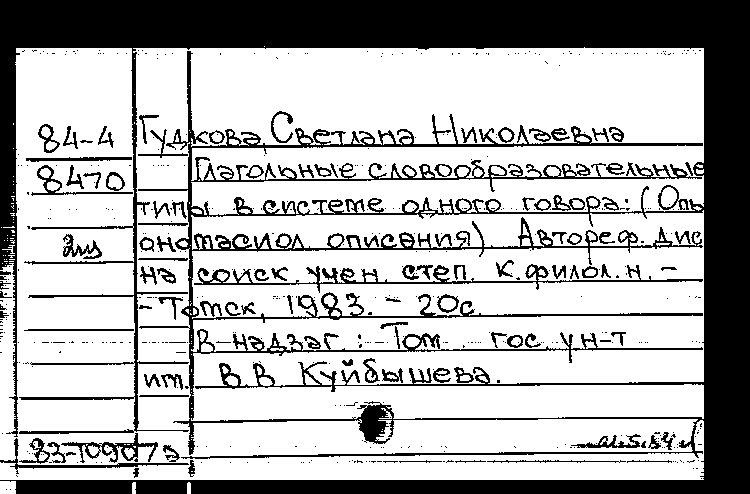 84-4 Гудкова, Светлана Николаевна
8470 Глагольные словообразовательные
типы в системе одного говора: (Опы
2из онотасиол. описания). Автореф. дис
на соиск. учен. степ. к.филол.н. -
- Томск, 1983. - 20с.
В надзаг.: Том. гос. ун-т
им. В.В. Куйбышева.
83-10907а